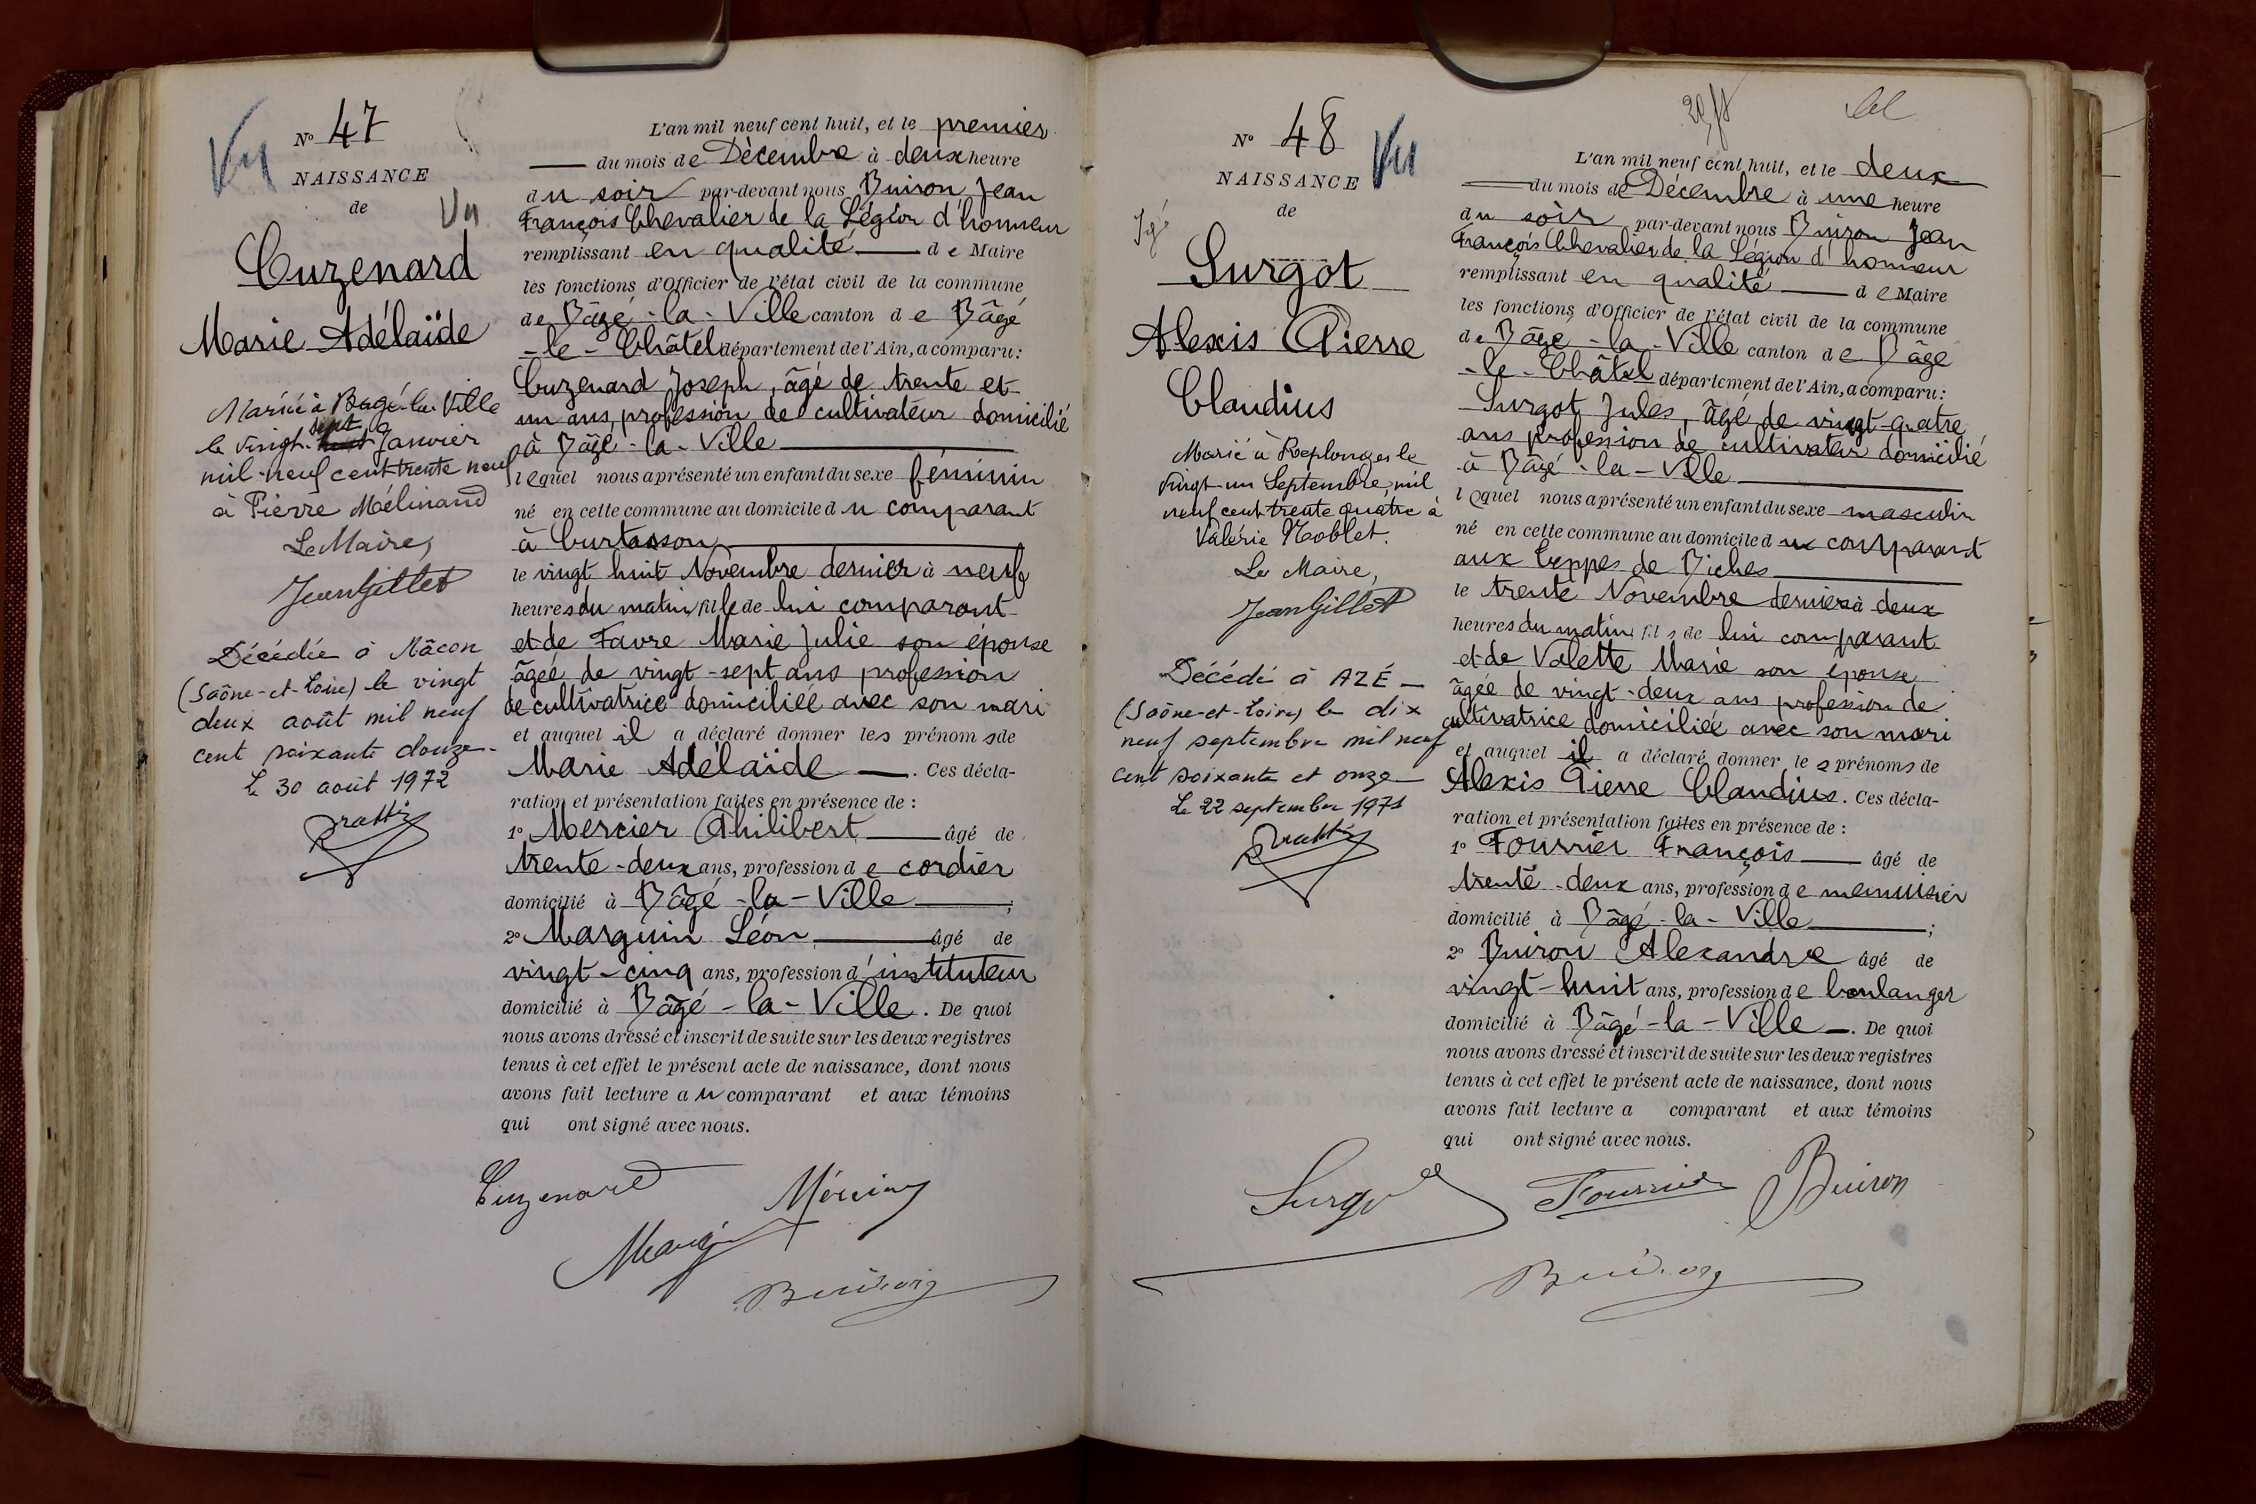 Nº 47
Vu
NAISSANCE
de
Vu
Cuzenard
Marie Adélaïde
Mariée à Bagé-la-Ville
le vingt-sept Janvier
mil-neuf cent trente neuf
à Pierre Mélinand
Le Maire,
Jean Gillet
Décédée à Mâcon
(Saône-et-Loire) le vingt
deux août mil neuf
cent soixante douze.
Le 30 août 1972
L'an mil neuf cent huit, et le premier
du mois de Décembre à deux heure
du soir par-devant nous Buiron Jean
François Chevalier de la Légion d'honneur
remplissant en qualité de Maire
les fonctions d'Officier de l'état civil de la commune
de Bâgé-la-Ville canton de Bâgé
-le-Châtel département de l'Ain, a comparu:
Cuzenard Joseph, âgé de trente et
un ans, profession de cultivateur domicilié
à Bâgé-la-Ville
lequel nous a présenté un enfant du sexe féminin
né en cette commune au domicile du comparant
à Curtasson
le vingt huit Novembre dernier à neuf
heures du matin fille de lui comparant
et de Favre Marie Julie son épouse
âgée de vingt-sept ans profession
de cultivatrice domiciliée avec son mari
et auquel il a déclaré donner les prénoms de
Marie Adélaïde. Ces décla-
ration et présentation faites en présence de :
1º Mercier Philibert âgé de
trente-deux ans, profession de cordier
domicilié à Bâgé-la-Ville ;
2º Marguin Léon âgé de
vingt-cinq ans, profession d'instituteur
domicilié à Bâgé-la-Ville. De quoi
nous avons dressé et inscrit de suite sur les deux registres
tenus à cet effet le présent acte de naissance, dont nous
avons fait lecture au comparant et aux témoins
qui ont signé avec nous.
Cuzenard Mercier
Marguin
Buiron
Nº 48
Vu
NAISSANCE
de
Surgot
Alexis Pierre
Claudius
Marié à Replonges le
vingt un Septembre, mil
neuf cent trente quatre à
Valérie Noblet.
Le Maire,
Jean Gillet
Décédé à AZÉ
(Saône-et-Loire) le dix
neuf septembre mil neuf
cent soixante et onze
Le 22 septembre 1971
L'an mil neuf cent huit, et le deux
du mois de Décembre à une heure
du soir par-devant nous Buiron Jean
François Chevalier de la Légion d'honneur
remplissant en qualité de Maire
les fonctions d'Officier de l'état civil de la commune
de Bâgé-la-Ville canton de Bâgé
-le-Châtel département de l'Ain, a comparu:
Surgot Jules, âgé de vingt-quatre
ans profession de cultivateur domicilié
à Bâgé-la-Ville
lequel nous a présenté un enfant du sexe masculin
né en cette commune au domicile du comparant
aux Teppes de Biches
le trente Novembre dernier à deux
heures du matin fils de lui comparant
et de Valette Marie son épouse
âgée de vingt-deux ans profession de
cultivatrice domiciliée avec son mari
et auquel il a déclaré donner les prénoms de
Alexis Pierre Claudius. Ces décla-
ration et présentation faites en présence de :
1º Fourrier François âgé de
trente-deux ans, profession de menuisier
domicilié à Bâgé-la-Ville ;
2º Buiron Alexandre âgé de
vingt-huit ans, profession de boulanger
domicilié à Bâgé-la-Ville. De quoi
nous avons dressé et inscrit de suite sur les deux registres
tenus à cet effet le présent acte de naissance, dont nous
avons fait lecture a comparant et aux témoins
qui ont signé avec nous.
Surgot Fourrier Buiron
Buiron